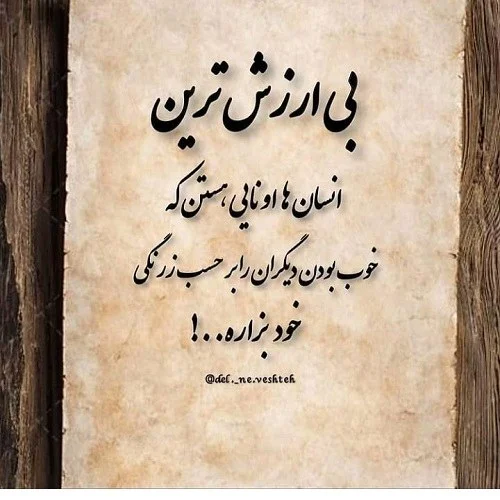 بی ارزش ترین
انسان ها اونایی هستن که
خوب بودن دیگران را بر حسب زرنگی
خود بزاره..!
@del._ne.veshteh